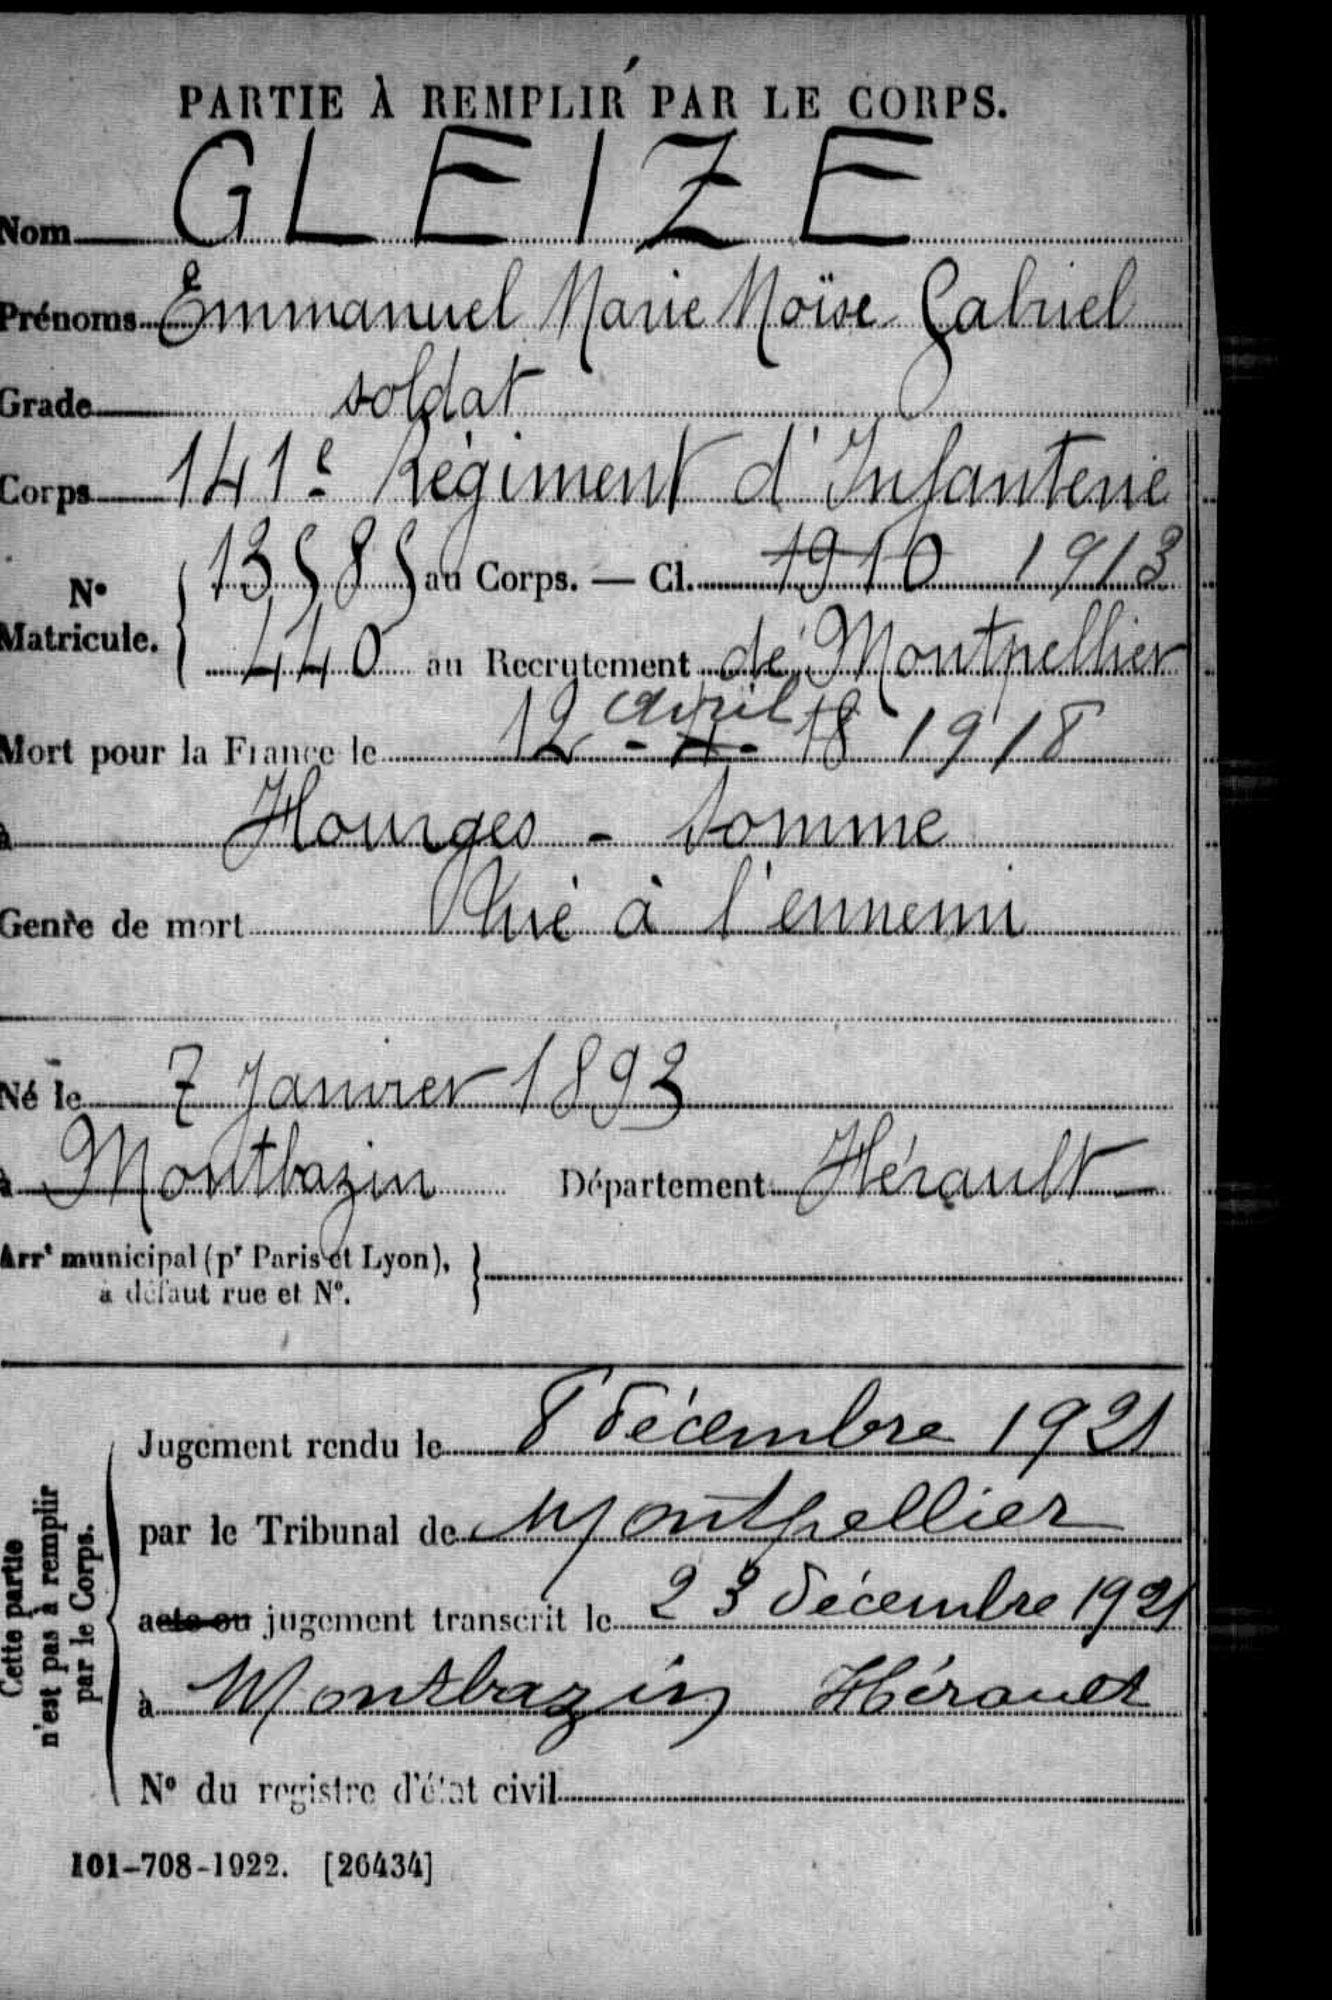 PARTIE À REMPLIR PAR LE CORPS.
Nom GLEIZE
Prénoms Emmanuel Marie Moïse Gabriel
Grade soldat
Corps 141e Régiment d'Infanterie
N° Matricule. 13585 au Corps. — Cl. 1910 1913
440 au Recrutement de Montpellier
Mort pour la France le 12 - 4 - 18 avril 1918
à Hourges - Somme
Genre de mort Tué à l'ennemi
Né le 7 Janvier 1893
à Montbazin Département Hérault
Arrt municipal (pr Paris et Lyon),
à défaut rue et N°.
Cette partie
n'est pas à remplir
par le Corps.
Jugement rendu le 8 décembre 1921
par le Tribunal de Montpellier
acte ou jugement transcrit le 23 décembre 1921
à Montbazin Hérault
N° du registre d'état civil
101-708-1922. [26434]